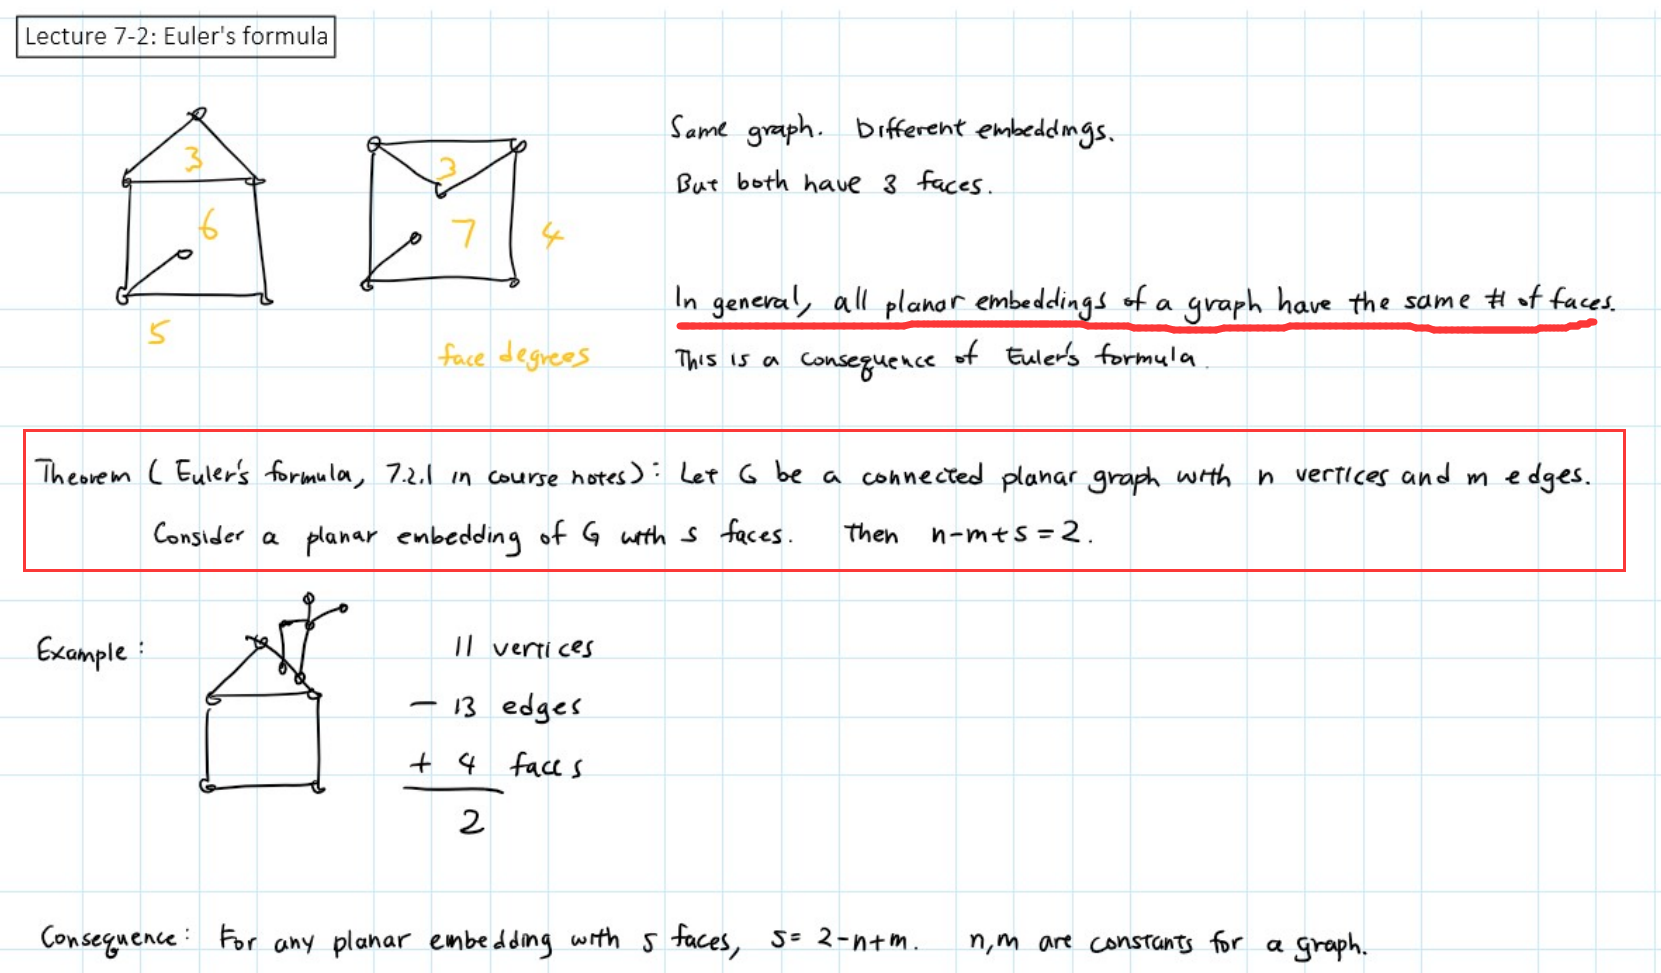 Lecture 7-2: Euler's formula
3
6
5
3
7
4
face degrees
Same graph. Different embeddings.
But both have 3 faces.
In general, all planar embeddings of a graph have the same # of faces.
This is a consequence of Euler's formula.
Theorem (Euler's formula, 7.2.1 in course notes): Let G be a connected planar graph with n vertices and m edges.
Consider a planar embedding of G with s faces. Then n-m+s=2.
Example:
11 vertices
- 13 edges
+ 4 faces
2
Consequence: For any planar embedding with s faces, s= 2-n+m. n,m are constants for a graph.